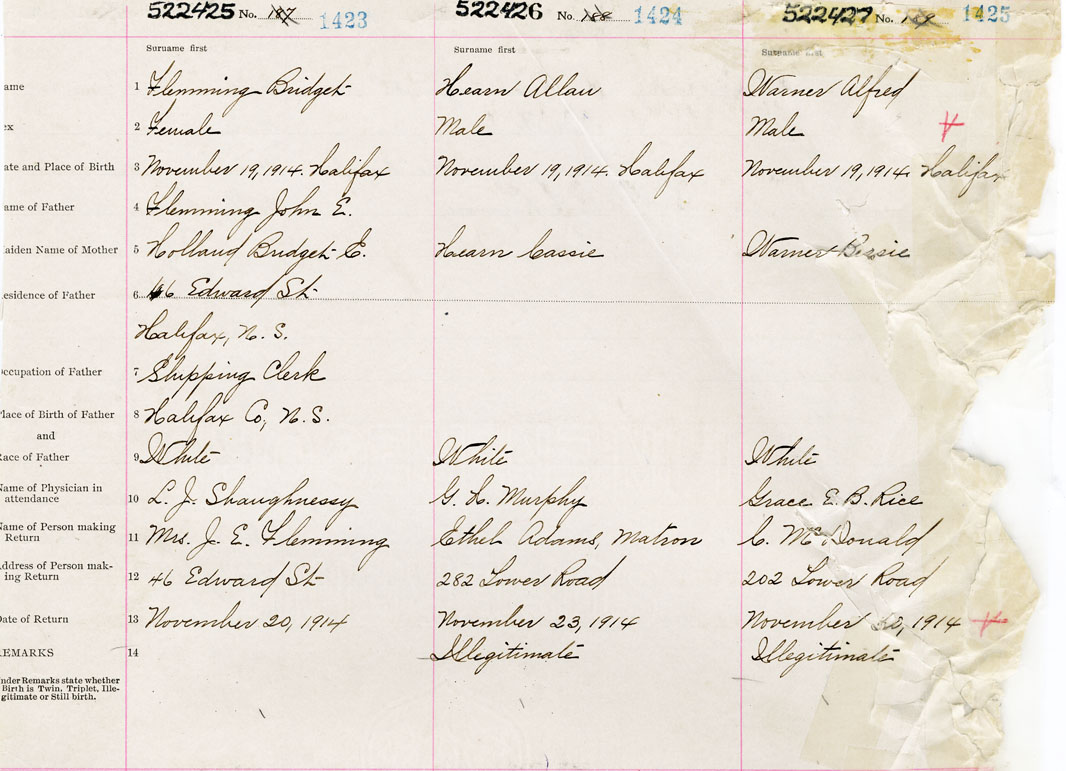 522425 No. 187 1423 522426 No. 188 1424 522427 No. 1425
Surname first Surname first Surname first
ame 1 Flemming Bridget Hearn Allan Warner Alfred
ex 2 Female Male Male
ate and Place of Birth 3 November 19, 1914. Halifax November 19, 1914. Halifax November 19, 1914 Halifax
ame of Father 4 Flemming John E.
aiden Name of Mother 5 Holland Bridget E. Hearn Cassie Warner Bessie
esidence of Father 6 46 Edward St
Halifax, N. S.
ccupation of Father 7 Shipping Clerk
lace of Birth of Father 8 Halifax Co, N. S.
and
ace of Father 9 White White White
Name of Physician in
attendance 10 L. J. Shaughnessy G. H. Murphy Grace E. B. Rice
Name of Person making
Return 11 Mrs. J. E. Flemming Ethel Adams, Matron C. McDonald
Address of Person mak-
ing Return 12 46 Edward St 282 Lower Road 202 Lower Road
Date of Return 13 November 20, 1914 November 23, 1914 November 30, 1914
REMARKS 14 Illegitimate Illegitimate
nder Remarks state whether
Birth is Twin, Triplet, Ille-
gitimate or Still birth.